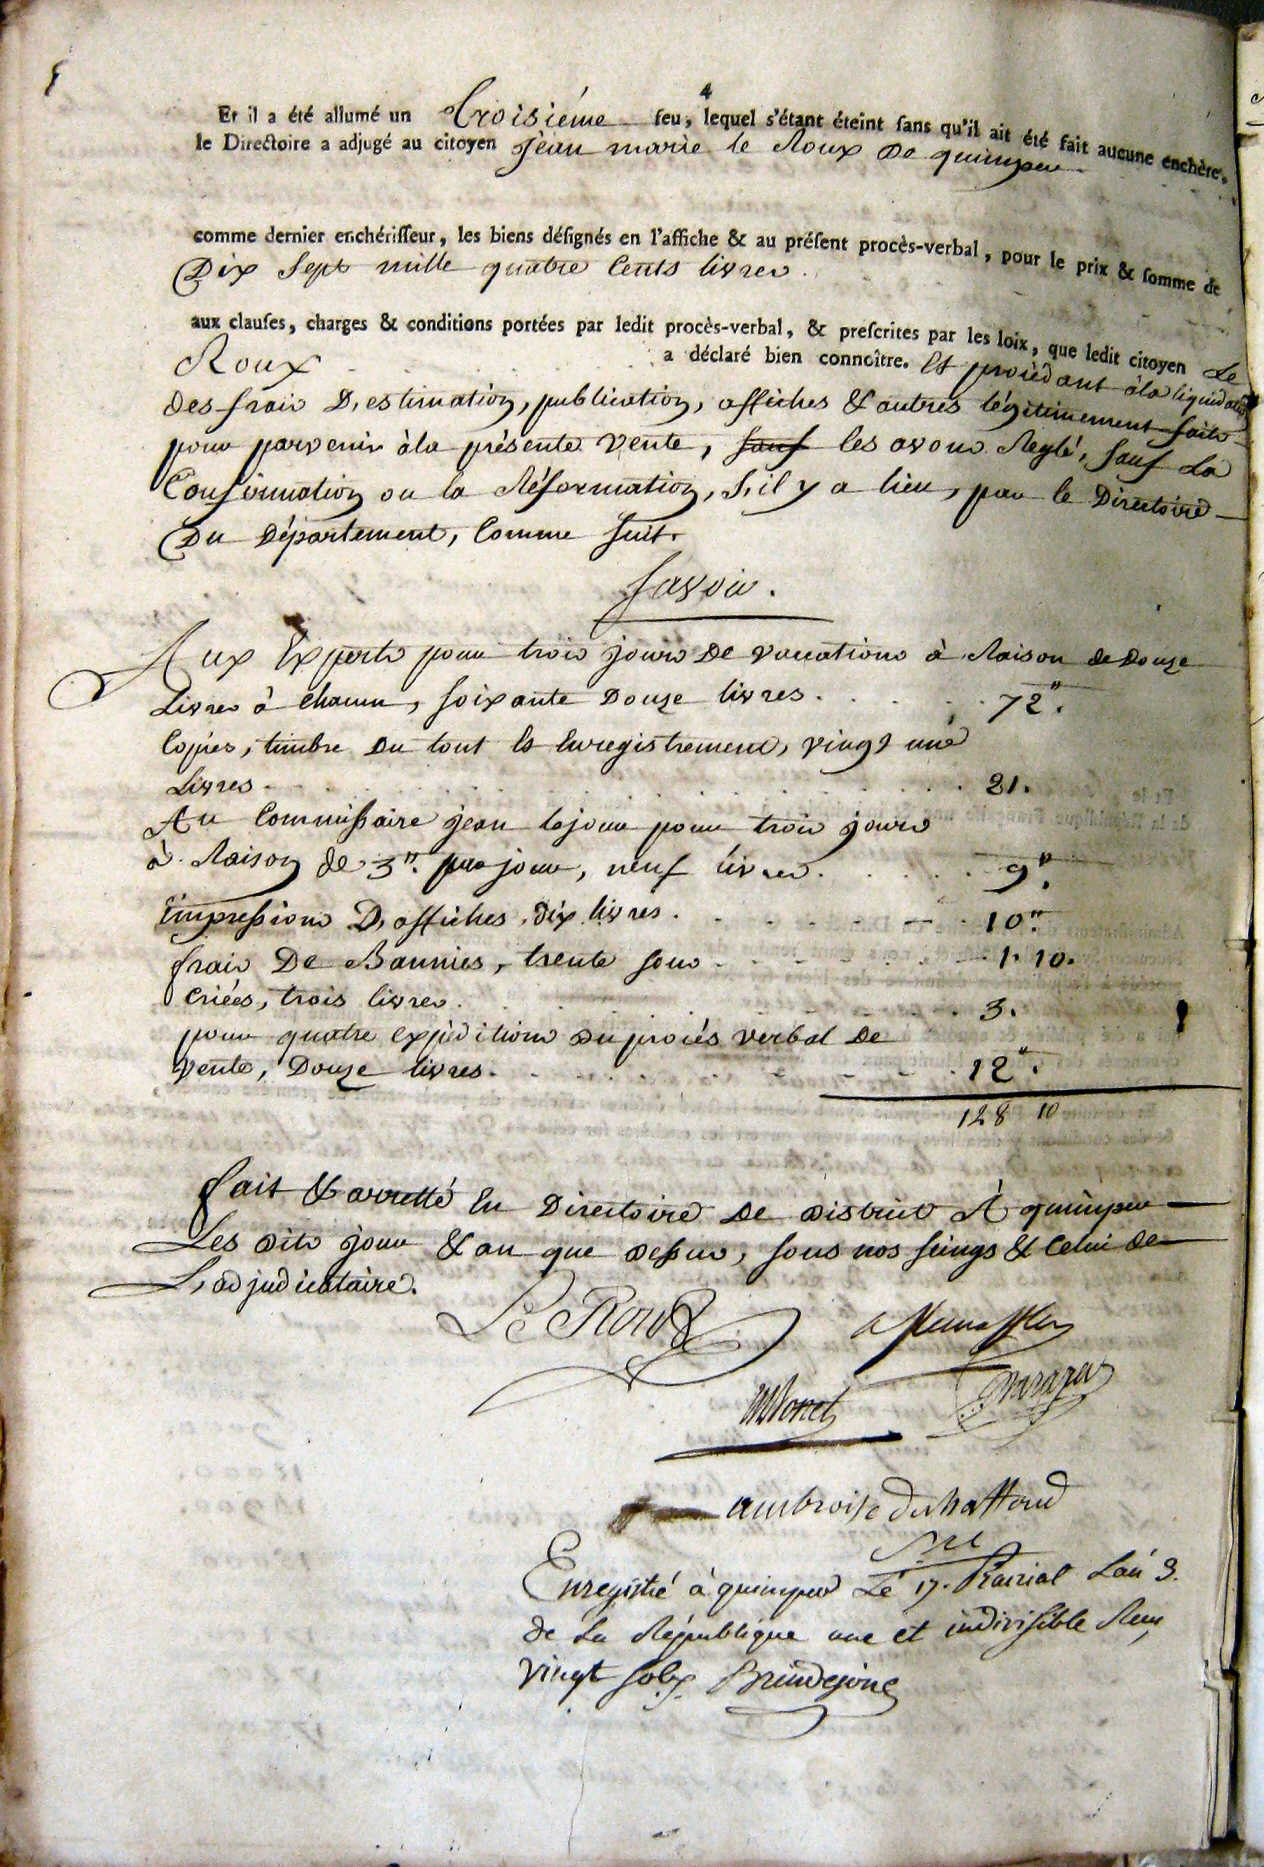 4
Et il a été allumé un Croisiéme feu, lequel s'étant éteint sans qu'il ait été fait aucune enchère,
le Directoire a adjugé au citoyen Jean marie le Roux de quimper
comme dernier enchérisseur, les biens désignés en l'affiche & au présent procès-verbal, pour le prix & somme de
Dix Sept mille quatre Cents livres.
aux clauses, charges & conditions portées par ledit procès-verbal, & prescrites par les loix, que ledit citoyen Le
Roux a déclaré bien connoître. Et procédant àla liquidation
des frais D'estimation, publication, affiches & autres légitimement faits
pour parvenir àla présente vente, sauf les avons Reglé, sauf La
Confirmation ou la Réformation, S'il y a lieu, par le Directoire
Du Département, Comme suit.
Savoir.
Aux Experts pour trois jours De vaccations à Raison de Douze
Livres à chacun, soixante Douze livres. 72".
Copies, timbre Du tout & Enregistrement, vingt une
Livres. 21.
Au Commissaire jean lejour pour trois jours
à Raison de 3". par jour, neuf livres. 9".
impressions D'affiches, dix livres. 10".
frais De Bannies, trente sous. 1. 10.
Criées, trois livres. 3.
pour quatre expéditions du procés verbal De
vente, Douze livres. 12".
128 10
fait & arretté En Directoire De District À quimper
Les dits jour & an que dessus, sous nos seings & Celui de
L'adjudicataire.
Le Roux
ambroise
Enregistré à quimper Le 17. Prairial L'an 3.
de La République une et indivisible Reçu
vingt sols